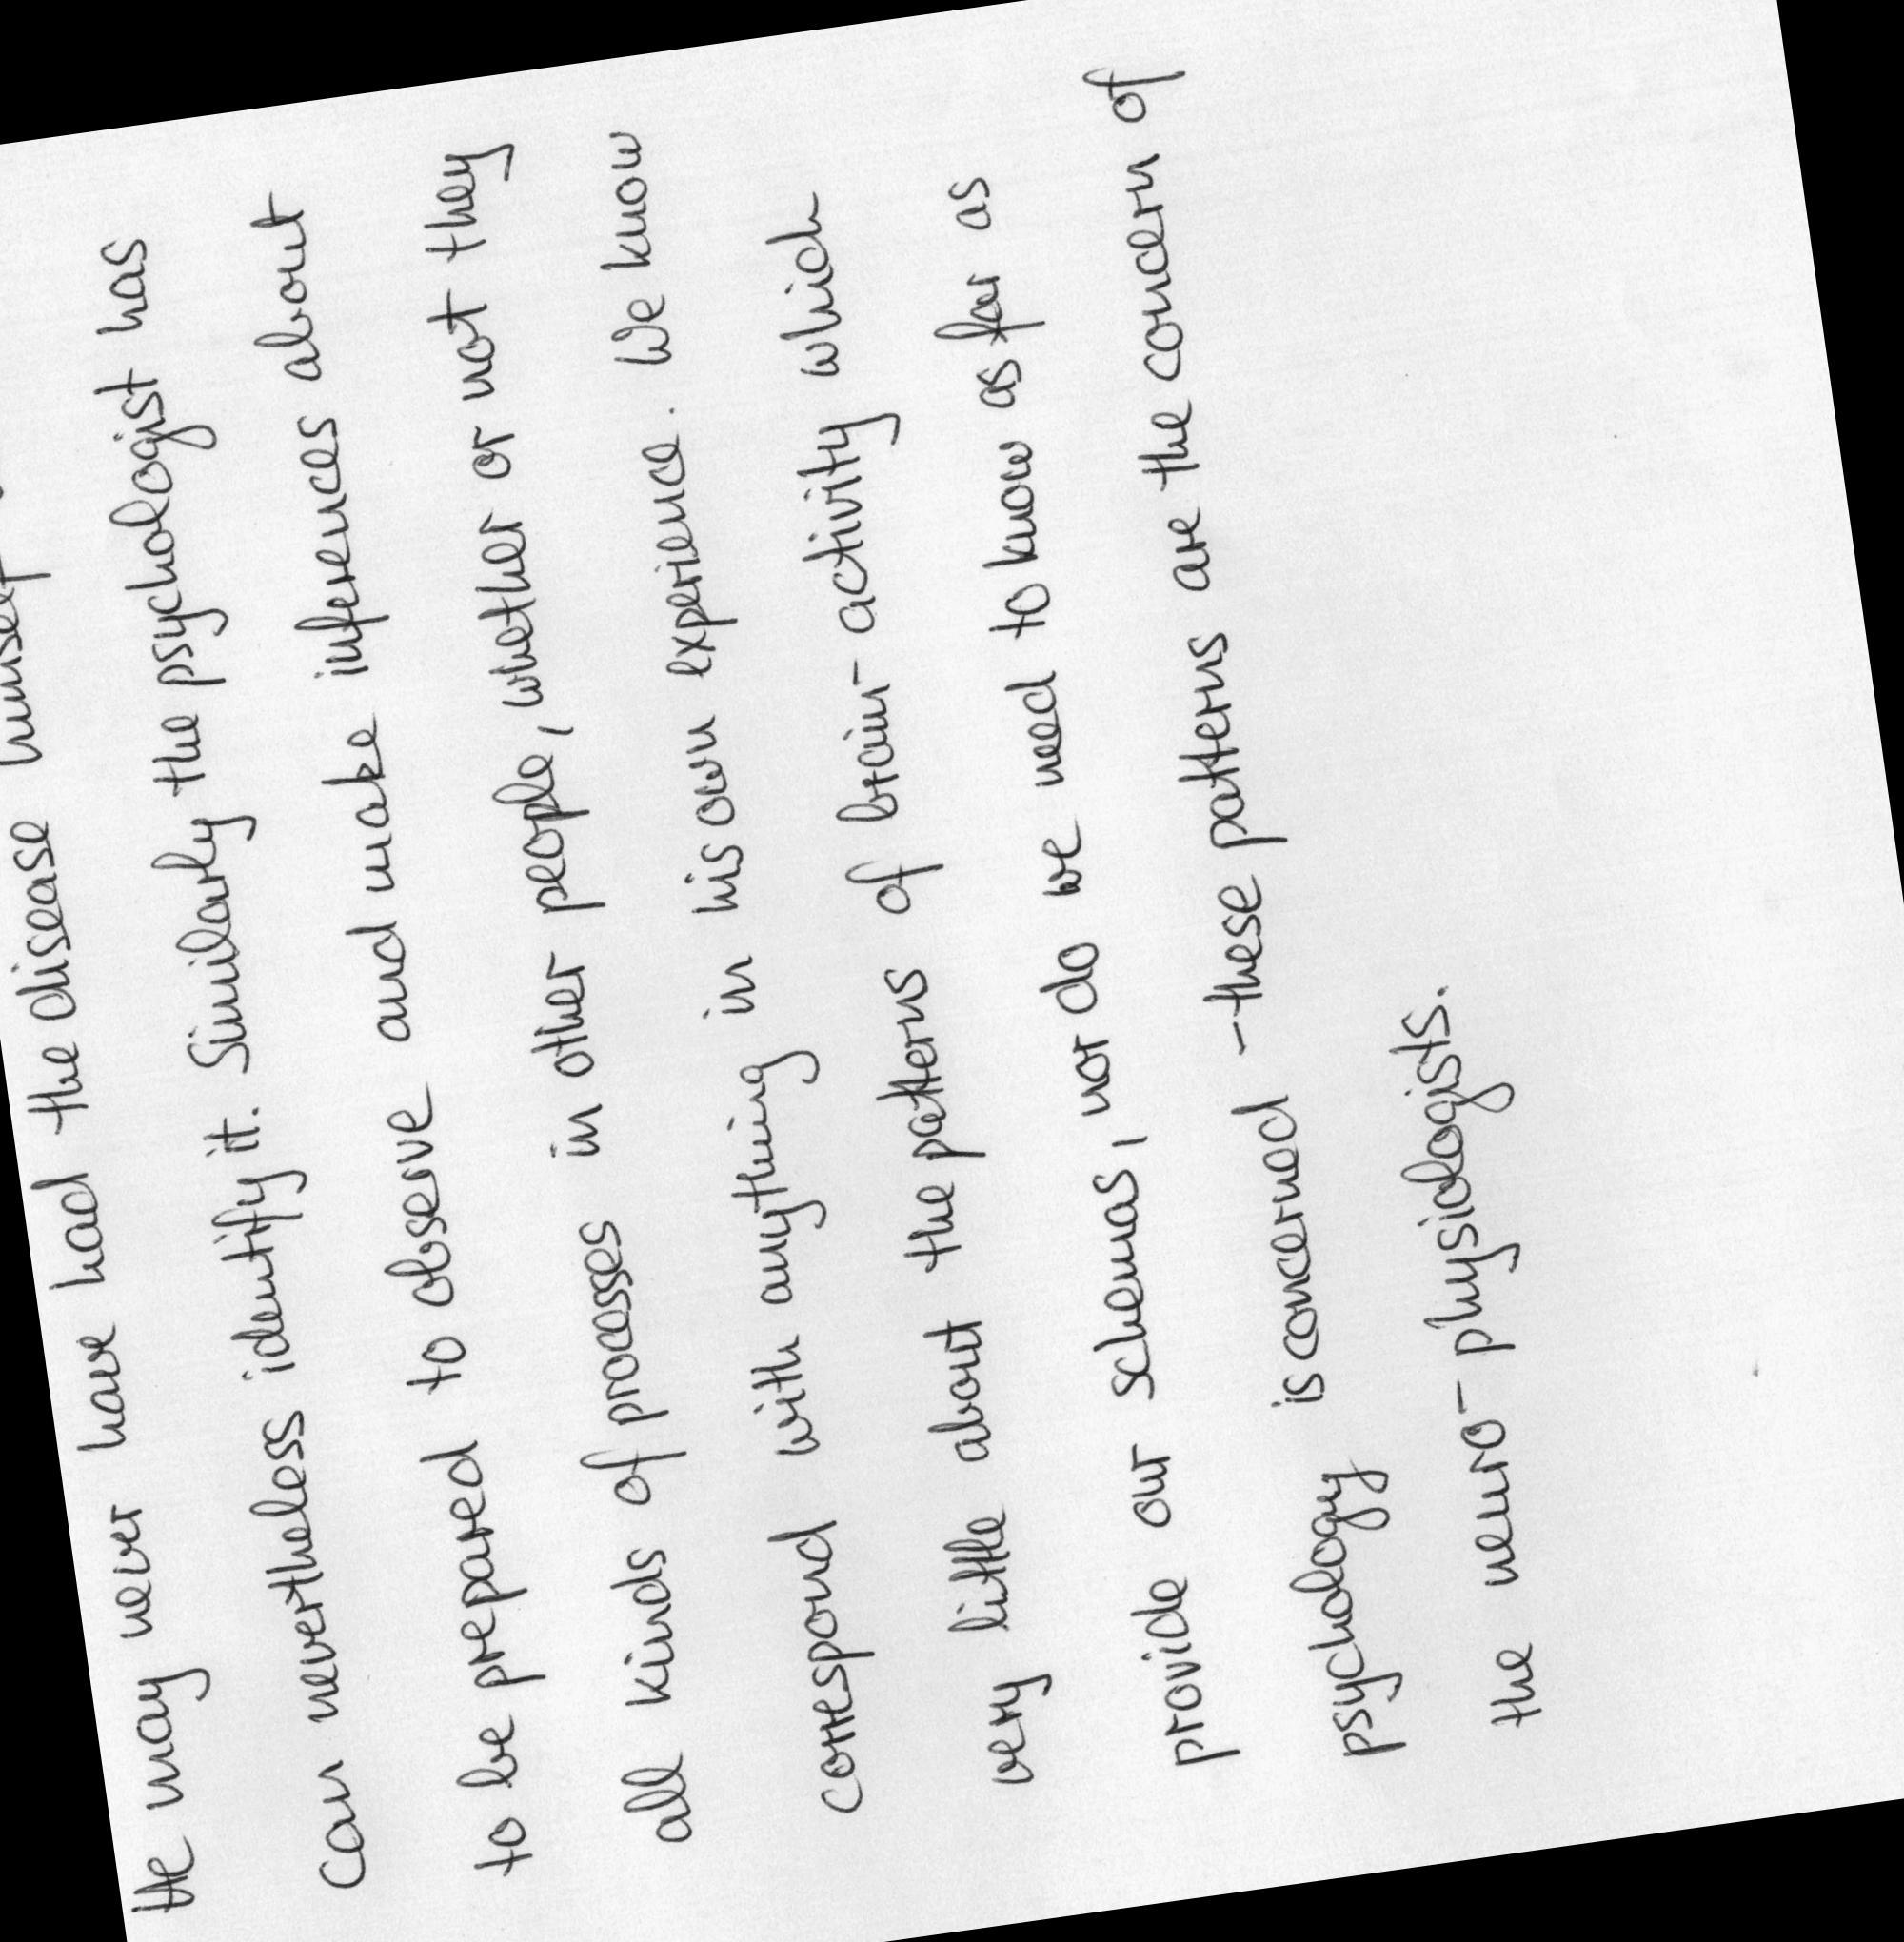 He may never have had the disease himself
can nevertheless identify it. Similarly the psychologist has
to be prepared to observe and make inferences about
all kinds of processes in other people, whether or not they
correspond with anything in his own experience. We know
very little about the patterns of brain-activity which
provide our schemas, nor do we need to know as far as
psychology is concerned - these patterns are the concern of
the neuro-physiologists.